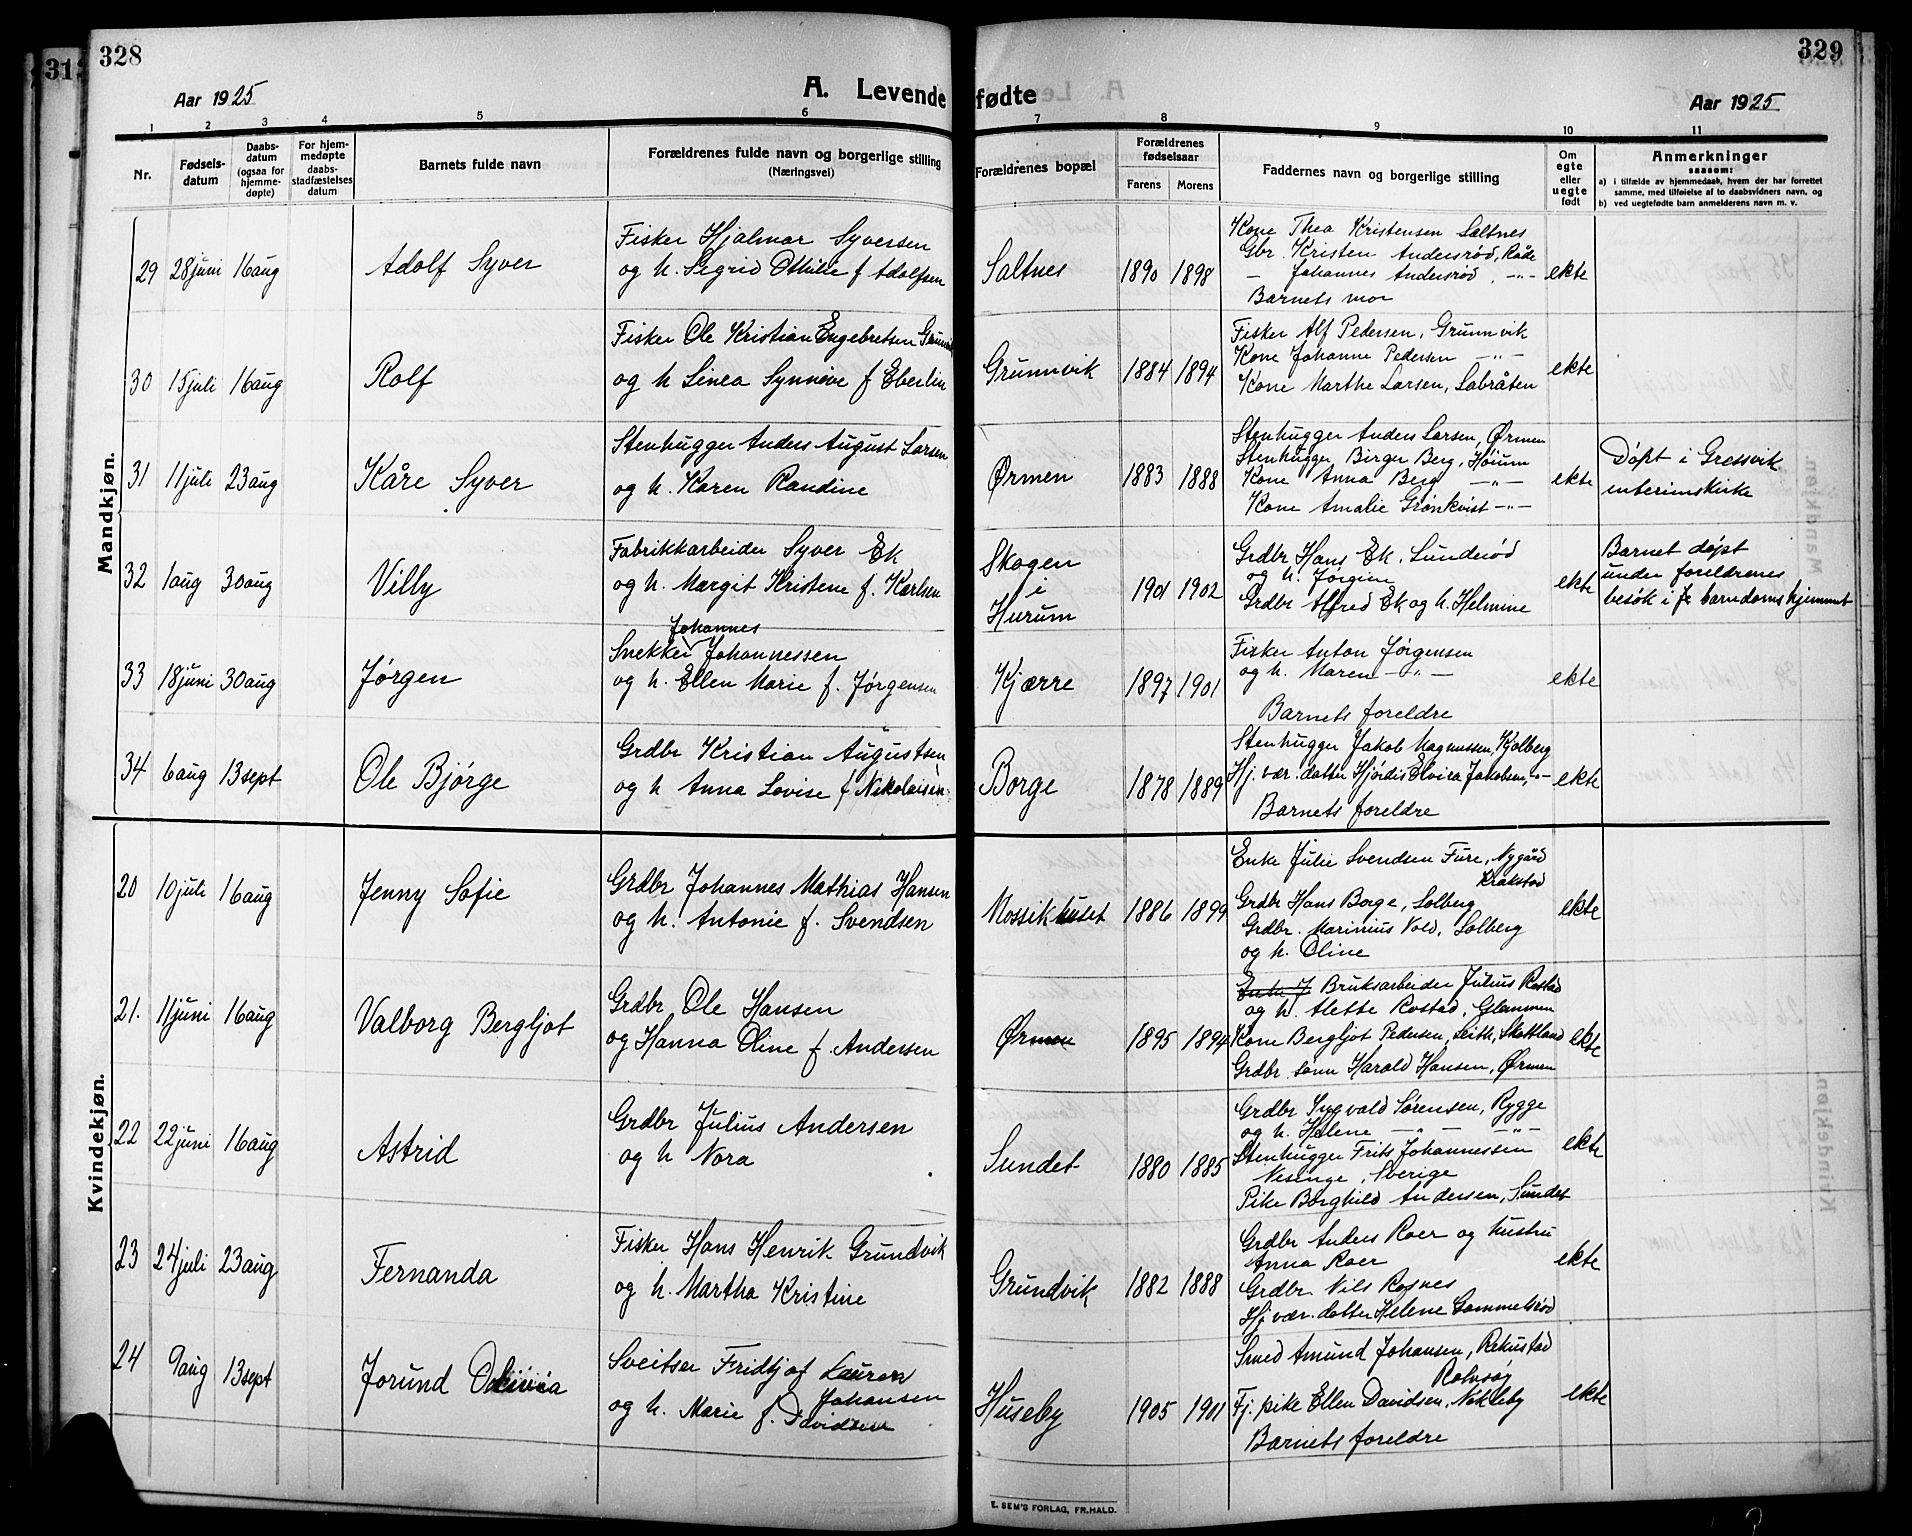 328
329
31
Aar 1925
A. Levende fødte
Aar 1925
1 2 3 4 5 6 7 8 9 10 11
Nr.
Fødsels-
datum
Daabs-
datum
(ogsaa for
hjemme-
døpte)
For hjem-
medøpte
daabs-
stadfæstelses
datum
Barnets fulde navn
Forældrenes fulde navn og borgerlige stilling
(Næringsvei)
Forældrenes bopæl
Forældrenes
fødselsaar
Farens Morens
Faddernes navn og borgerlige stilling
Om
egte
eller
uegte
født
Anmerkninger
saasom:
a) i tilfælde av hjemmedaab, hvem der har forrettet
samme, med tilføielse af to daabsvidners navn, og
b) ved uegtefødte barn anmelderens navn m. v.
Mandkjøn.
29 28 juni 16 aug
Adolf Syver
Fisker Hjalmar Syversen
og h. Sigrid Othilie f Adolfsen
Saltnes
1890 1898
Kone Thea Kristensen Saltnes
Gbr. Kristen Andersrød, Råde
— Johannes Andersrød, —"—
Barnets mor
ekte
30 15 juli 16 aug
Rolf
Fisker Ole Kristian Engebretsen
og h Linea Synnøve f Eberlin
Grunnvik
1884 1894
Fisker Alf Pedersen, Grunnvik
Kone Johanne Pedersen —"—
Kone Marthe Larsen, Labråten
ekte
31 11 juli 23 aug
Kåre Syver
Stenhugger Anders August Larsen
og h. Karen Randine
Ørmen
1883 1888
Stenhugger Anders Larsen, Ørmen
Stenhugger Birger Berg, Høium
Kone Anna Berg —"—
Kone Amalie Grønkvist —"—
ekte
Døpt i Gressvik
interimskirke
32 1 aug 30 aug
Villy
Fabrikkarbeider Syver Ek
og h. Margit Kristene f. Karlsen
Skogen
i
Hurum
1901 1902
Grdbr Hans Ek, Sunderød
og h. Jørgine
Grdbr Alfred Ek og h. Helmine
ekte
Barnet døpt
under foreldrenes
besøk i barndomshjemmet
33 18 juni 30 aug
Jørgen
Johannes
Snekker Johannessen
og h. Ellen Marie f. Jørgensen
Kjærre
1897 1901
Fisker Anton Jørgensen
og h. Maren —"—
Barnets foreldre
ekte
34 6 aug 13 sept
Ole Bjørge
Grdbr Kristian Augustsen
og h Anna Lovise f Nikolaisen
Borge
1878 1889
Stenhugger Jakob Magnussen, Kjølberg
Hj. vær. datter Hjørdis Elvira Jakobsen, —"—
Barnets foreldre
ekte
Kvindekjøn.
20 10 juli 16 aug
Jenny Sofie
Grdbr Johannes Mathias Hansen
og h. Antonie f. Svendsen
Mossikhuset
1886 1899
Enke Julie Svendsen Fure, Nygård
Kråkstad
Grdbr Hans Borge, Solberg
Grdbr. Marinius Vold, Solberg
og h. Oline
ekte
21. 11 juni 16 aug
Valborg Bergljot
Grdbr Ole Hansen
og Hanna Oline f. Andersen
Ørmen
1895 1894
Bruksarbeider Julius Rostad
og h. Alette Rostad, Glemmen
Kone Bergljot Pedersen, Leith, Skottland
Grdbr sønn Harald Hansen, Ørmen
ekte
22 22 juni 16 aug
Astrid
Grdbr Julius Andersen
og h Nora
Sundet
1880 1885
Grdbr Sygvald Sørensen, Rygge
og h. Helene —"— —"—
Stenhugger Frits Johannessen
Nesinge, Sverige
Pike Borghild Andersen, Sundet
ekte
23 24 juli 23 aug
Fernanda
Fisker Hans Henrik Grundvik
og h. Martha Kristine
Grundvik
1882 1888
Grdbr Anders Roer og hustru
Anna Roer
Grdbr Nils Rosnes
Hj. vær. datter Helene Gammelsrød
ekte
24 9 aug 13 sept
Jorund
Sveitser Fridtjof
Johansen
og h. Marie f. Davidsen
Huseby
1905 1901
Smed Amund Johansen, Rekustad
Rolvsøy
Fj. pike Ellen Davidsen, Nökleby
Barnets foreldre
ekte
E. SEM'S FORLAG, FR.HALD.